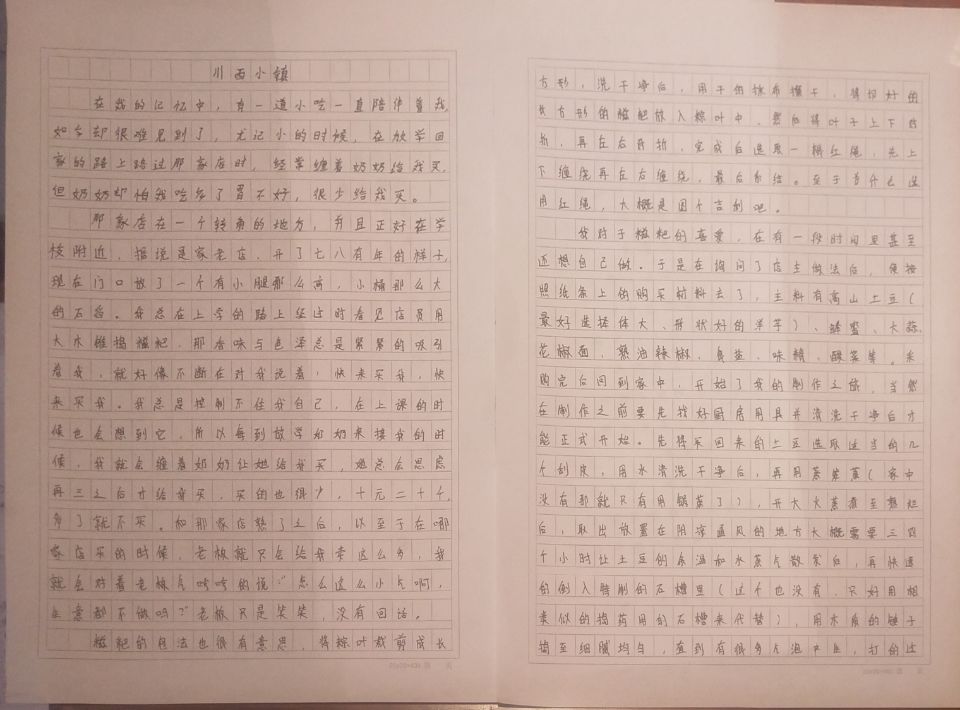 川西小镇
在我的记忆中，有一道小吃一直陪伴着我，
如今却很难见到了，尤记小的时候，在放学回
家的路上路过那家店时，经常缠着奶奶给我买，
但奶奶却怕我吃多了胃不好，很少给我买。
那家店在一个转角的地方，并且正好在学
校附近，据说是家老店，开了七八有年的样子，
现在门口放了一个有小腿那么高，小桶那么大
的石臼。我总在上学的路上经过时看见店员用
大木锥捣糍粑，那香味与色泽总是紧紧的吸引
着我，就好像不断在对我说着：快来买我，快
来买我。我总是控制不住我自己，在上课的时
候也会想到它，所以每到放学奶奶来接我的时
候，我就会缠着奶奶让她给我买，她总会思虑
再三之后才给我买，买的也很少，十元二十个，
多了就不买。和那家店熟了之后，以至于在哪
家店买的时候，老板就只会给我卖这么多，我
就会对着老板气哼哼的说：“怎么这么小气啊，
生意都不做吗？”老板只是笑笑，没有回话。
糍粑的包法也很有意思，将粽叶裁剪成长
方形，洗干净后，用干的抹布擦干，将切好的
长方形的糍粑放入粽叶中。然后将叶子上下对
折，再左右再折，完成后选黑一根红绳，先上
下缠绕再左右缠绕，最后系结。至于为什么选
用红绳，大概是图个吉利吧。
我对于糍粑的喜爱，在有一段时间里甚至
还想自己做。于是在询问了店主做法后，便按
照纸条上的购买材料去了，主料有高山土豆（
最好选择体大、形状好的洋芋）、蜂蜜、大蒜、
花椒面，熟油辣椒，食盐，味精、酸菜等。采
购完后回到家中，开始了我的制作之旅，当然
在制作之前要先找好厨房用具并清洗干净后才
能正式开始。先将买回来的土豆选取适当的几
个刮皮，用水清洗干净后，再用蒸笼蒸（家中
没有那就只有用锅蒸了），开大火蒸煮至熟烂
后，取出放置在阴凉通风的地方大概需要三四
个小时让土豆的余温和水蒸气散案后，再快速
的倒入特制的石槽里（这个也没有，只好用相
类似的捣药用的石槽来代替），用木质的锤子
捣至细腻均匀，直到有很多气泡产生，打的过